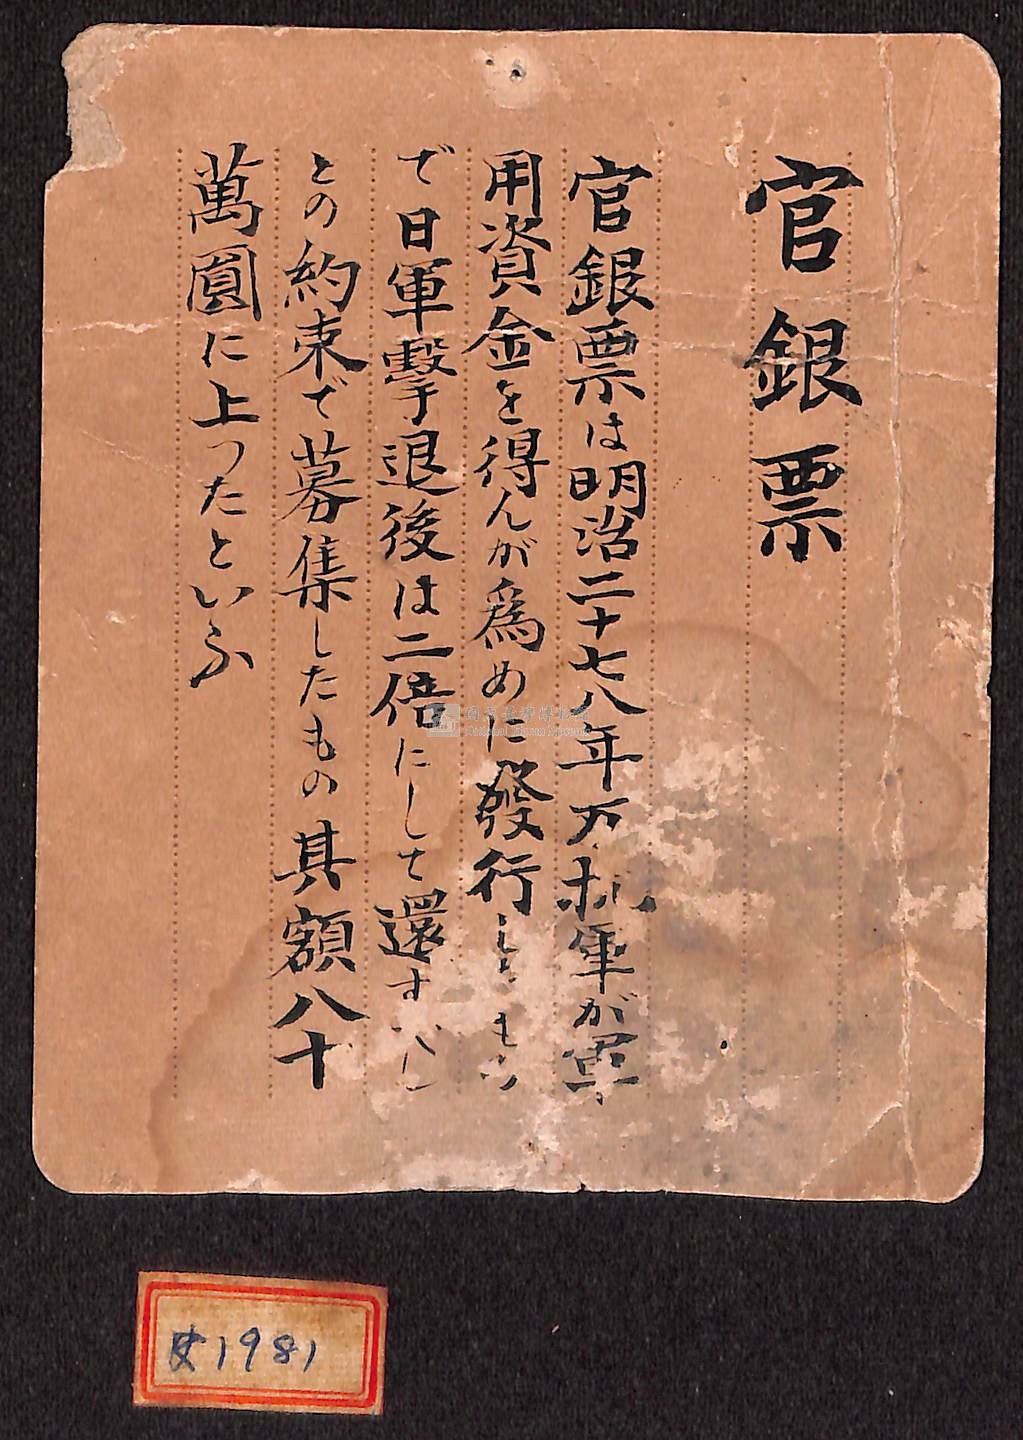 官銀票
官銀票は明治二十七八年反抗軍が軍
用資金を得んが爲めに發行したもの
で日軍擊退後は二倍にして還すべし
との約束で募集したもの其額八十
萬圓に上つたといふ
國立臺灣博物館
National Taiwan Museum
史1981